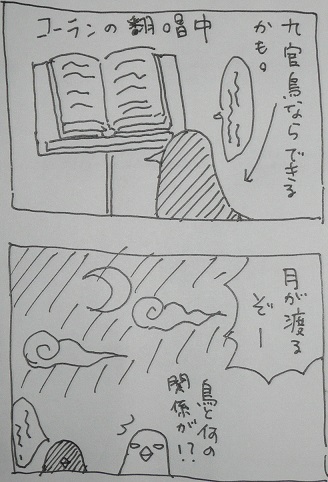 コーランの翻唱中
九官鳥ならできる
かも。
月が渡る
ぞー
鳥と何の
関係が!?